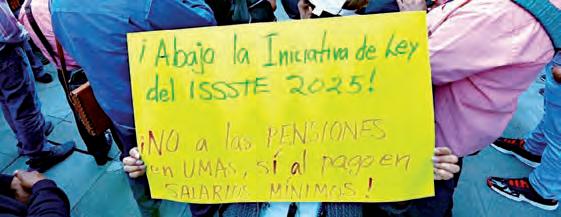 ¡Abajo la Iniciativa de Ley
del ISSSTE 2025!
¡NO a las PENSIONES
en UMAS, sí al pago en
SALARIOS MÍNIMOS!